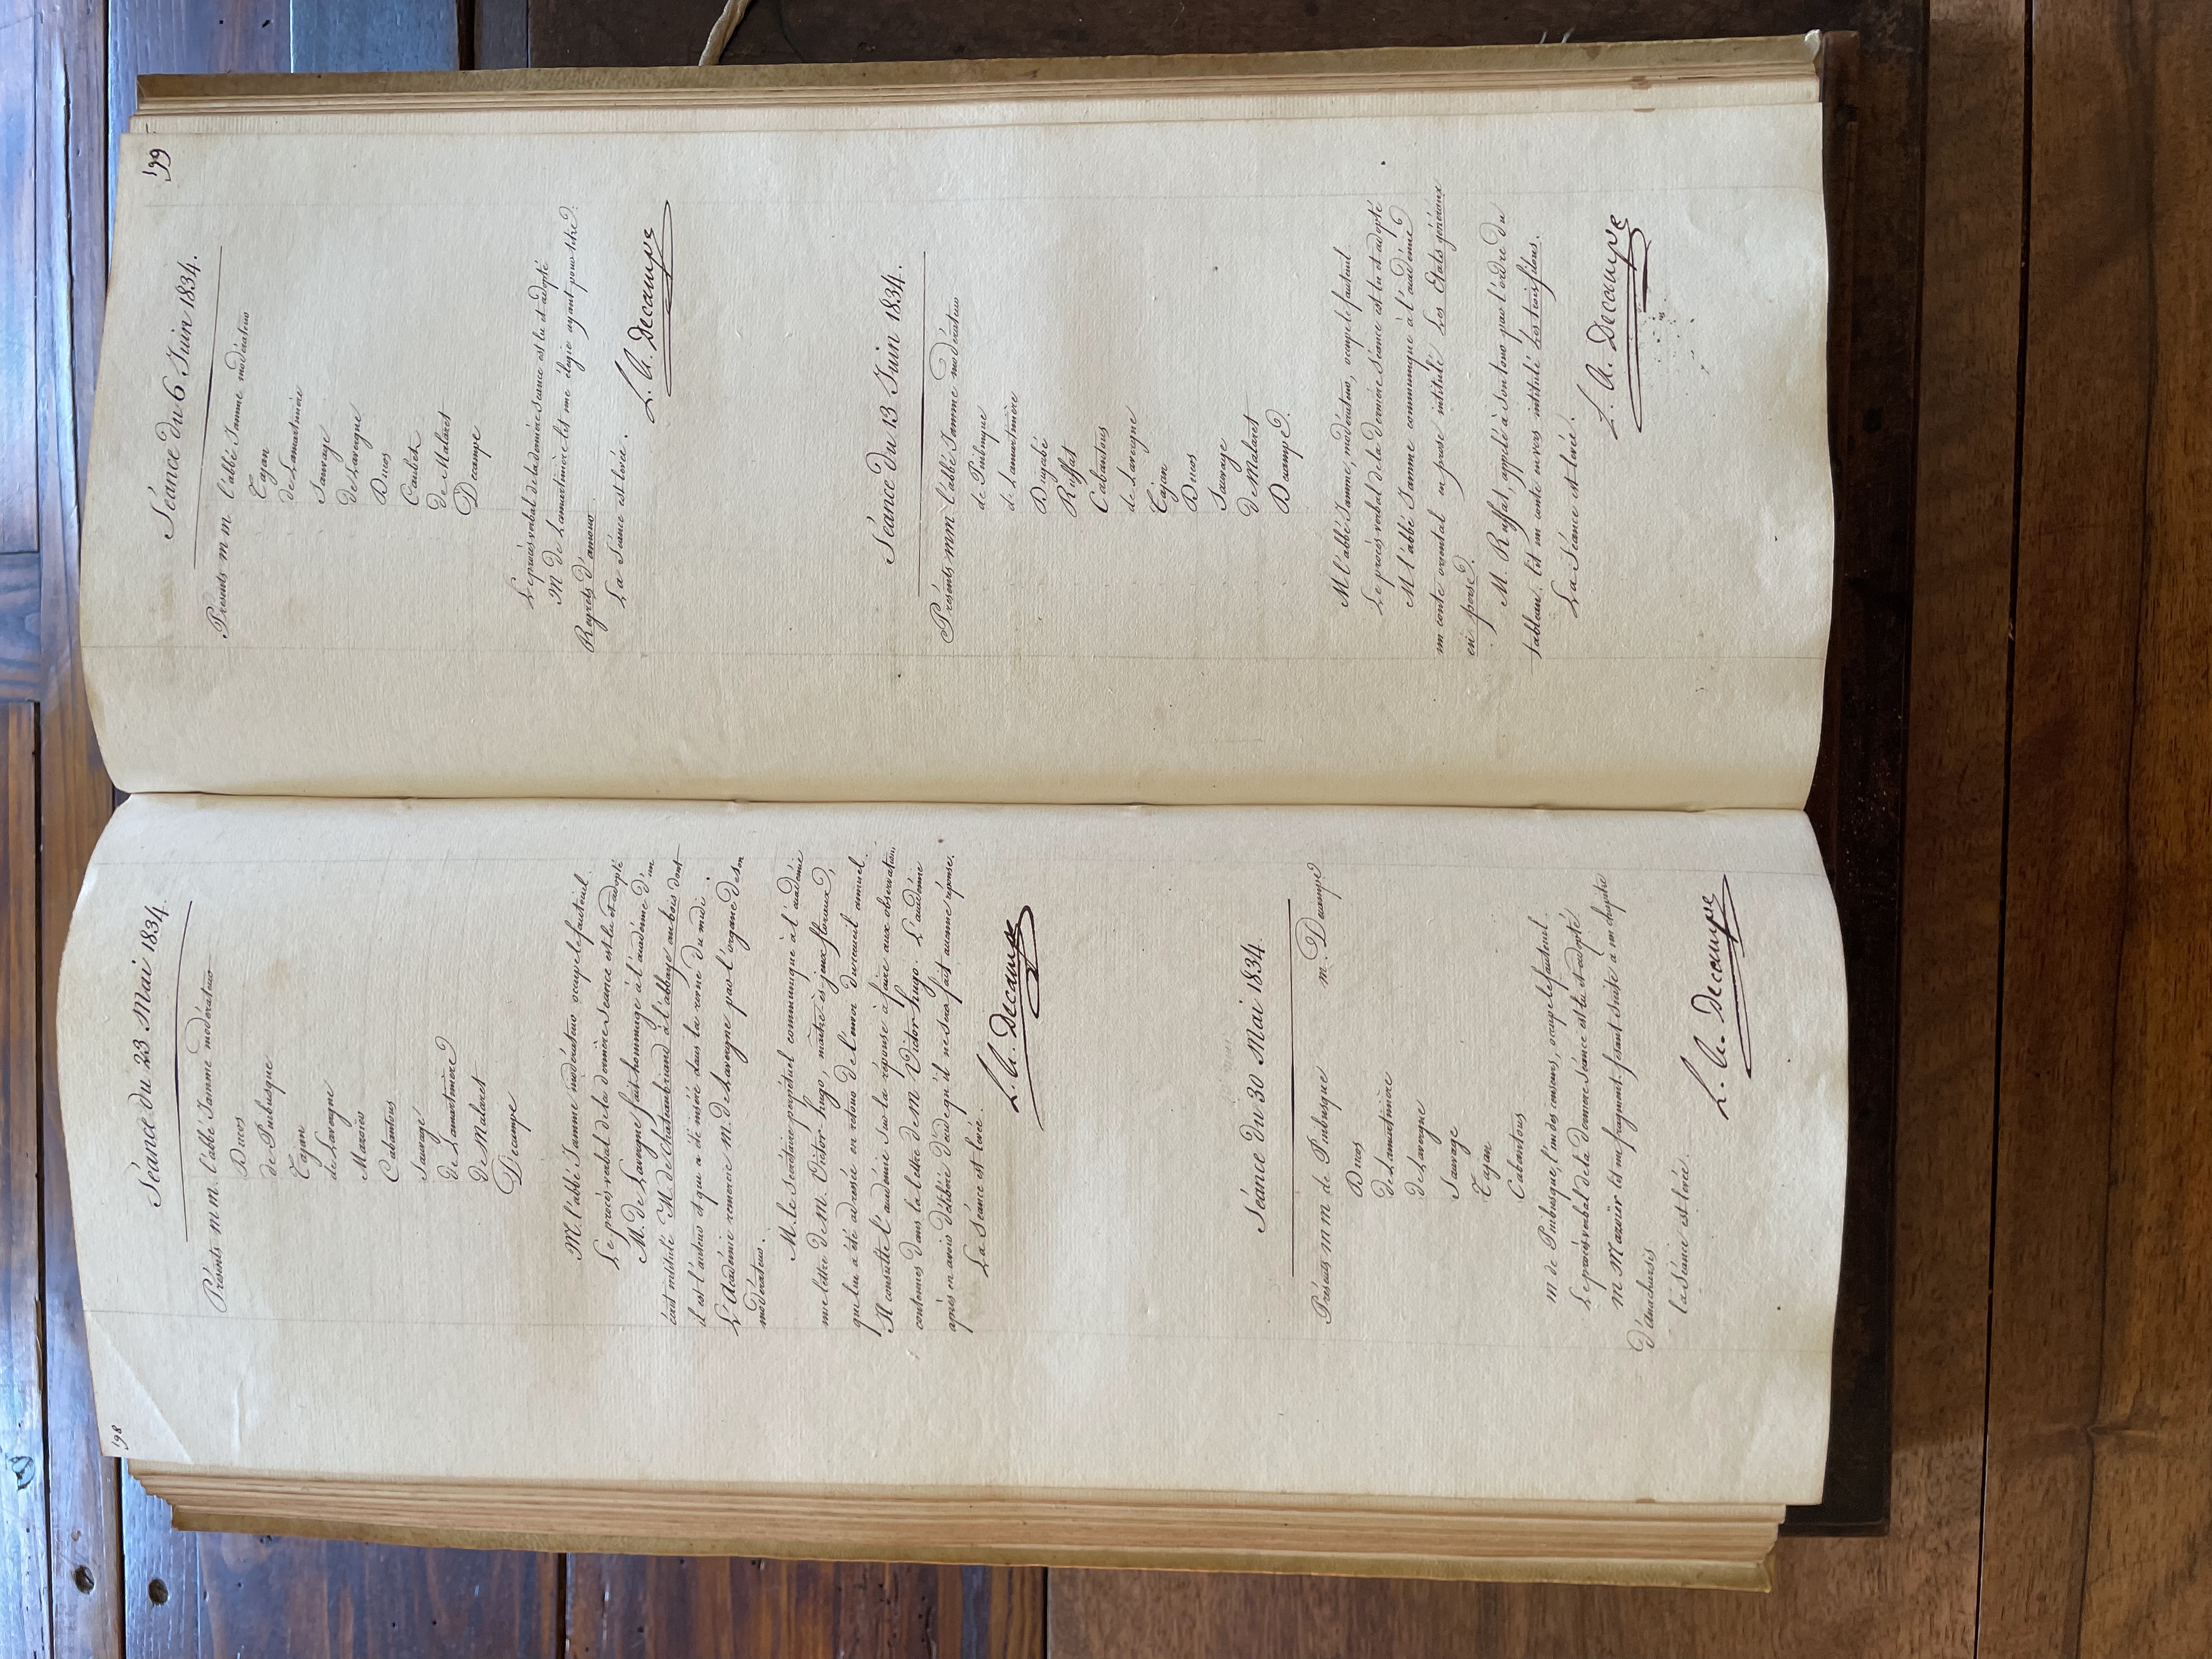 198
Séance du 23 Mai 1834.
Présents m m. l'abbé Jamme modérateur
Ducos
de Pinbusque
Tajan
de Lavergne
Mazoïer
Cabantous
Sauvage
de Lamartinière
De Malaret
Decampe
M. l'abbé Jamme modérateur occupe le fauteuil.
Le procès verbal de la dernière séance est lu et adopté
M. de Lavergne fait hommage à l'académie d'un
écrit intitulé M. de Chateaubriand à l'abbaye au bois dont
il est l'auteur et qui a été inséré dans la revue du midi.
L'Académie remercie M. de Lavergne par l'organe de son
modérateur.
M. le Secrétaire perpétuel communique à l'académie
une lettre de M. Victor hugo, maître ès jeux floraux,
qui lui a été adressée en retour de l'envoi du recueil annuel.
Il consulte l'académie sur la réponse à faire aux observations
contenues dans la lettre de M Victor hugo. L'académie
après en avoir délibéré décide qu'il ne sera fait aucune réponse.
La Séance est levée.
L. A. Decampe
Séance du 30 Mai 1834.
Présents m m de Pinbusque m. Decampe
Ducos
de Lamartinière
de Lavergne
Sauvage
Tajan
Cabantous
m de Pinbusque, l'un des censeurs, occupe le fauteuil.
Le procès verbal de la dernière séance est lu et adopté
m Mazoïer lit un fragment fesant suite à un chapitre
d'anacharsis
la Séance est levée.
L. A. Decampe
199
Séance du 6 Juin 1834.
Présents m m l'abbé Jamme modérateur
Tajan
de Lamartinière
Sauvage
de Lavergne
Ducos
Caubet
de Malaret
Decampe
Le procès verbal de la dernière séance est lu et adopté
M de Lamartinière lit une élégie ayant pour titre
Regrets d'amour
La Séance est levée.
L. A. Decampe
Séance du 13 Juin 1834.
Présents mm l'abbé Jamme modérateur
de Pinbusque
de Lamartinière
Dugabé
Ruffat
Cabantous
de Lavergne
Tajan
Ducos
Sauvage
De Malaret
Decampe
M l'abbé Jamme, modérateur, occupe le fauteuil.
Le procès verbal de la dernière séance est lu et adopté
M l'abbé Jamme communique à l'académie
un conte oriental en prose intitulé Les Etats généraux
en perse.
M. Ruffat, appelé à son tour par l'ordre du
tableau, lit un conte en vers intitulé Les trois filous.
La Séance est levée.
L. A. Decampe